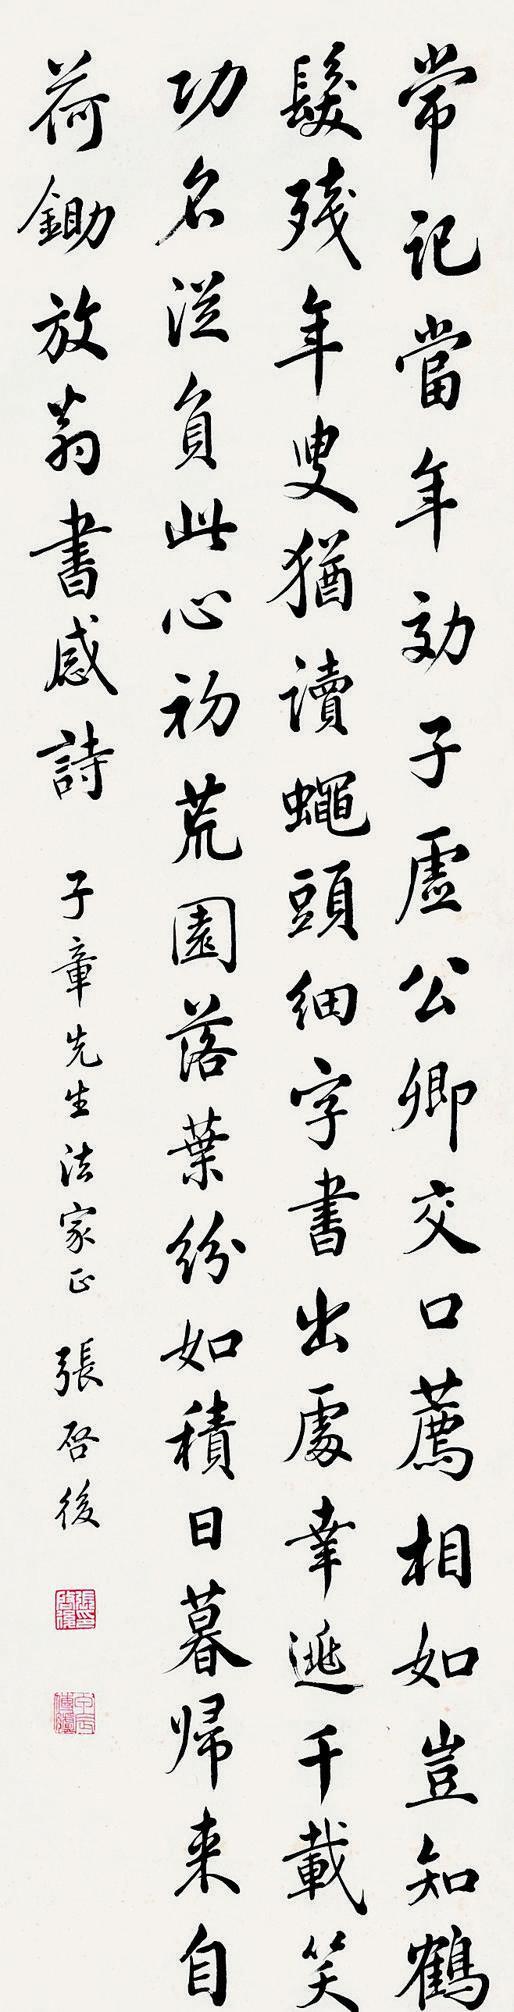 常記當年効子虛公卿交口薦相如豈知鶴
髮殘年叟猶讀蠅頭細字書出處幸逃千載笑
功名從負此心初荒園落葉紛如積日暮歸來自
荷鋤放翁書感詩 子章先生法家正 張啓後